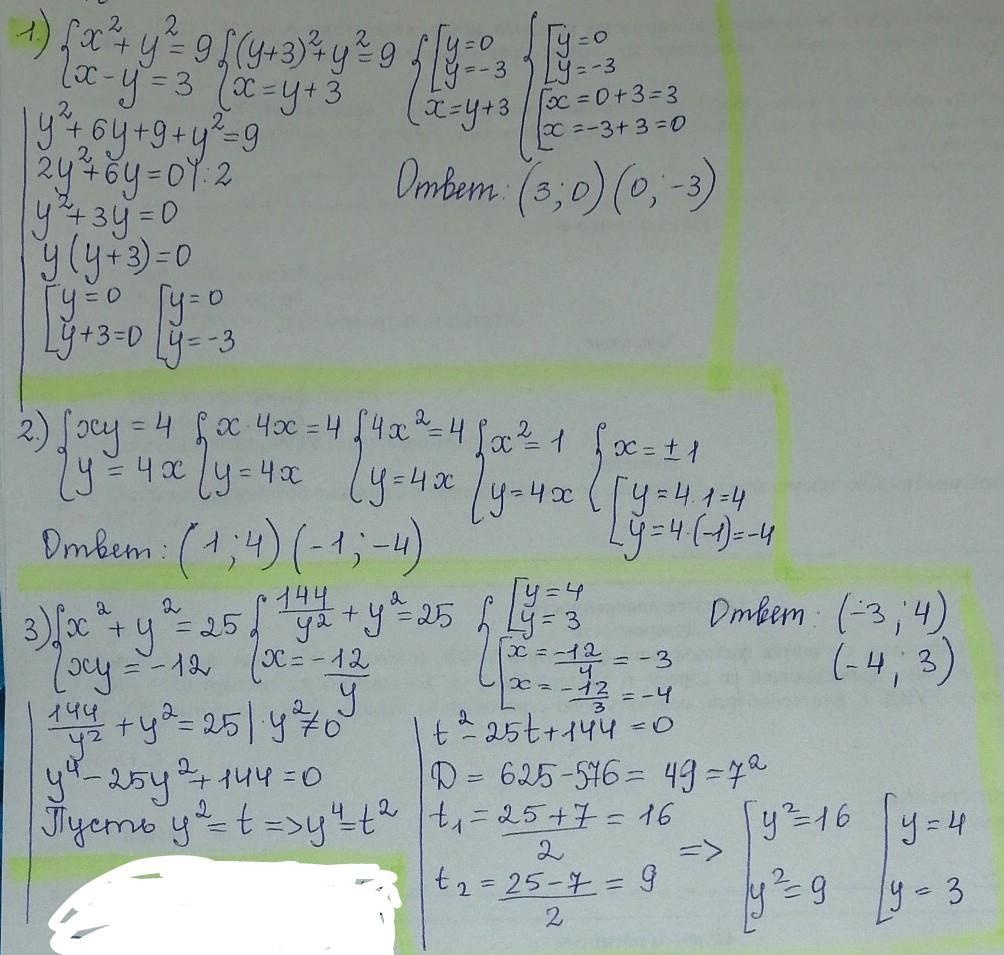 1.) {x² + y² = 9 {(y+3)² + y² = 9 {[y=0 {[y=0
{x - y = 3 {x = y + 3 [y=-3 [y=-3
{x=y+3 [x = 0+3 = 3
[x = -3+3 = 0
y² + 6y + 9 + y² = 9
2y² + 6y = 0 |:2
y² + 3y = 0
y(y+3) = 0
[y = 0 [y = 0
[y+3=0 [y = -3
Ответ: (3; 0) (0; -3)
2.) {xy = 4 {x · 4x = 4 {4x² = 4 {x² = 1 {x = ±1
{y = 4x {y = 4x {y = 4x {y = 4x {[y = 4·1=4
[y = 4·(-1)=-4
Ответ: (1; 4) (-1; -4)
3) {x² + y² = 25 {144/y² + y² = 25 {[y = 4
[y = 3
{xy = -12 {x = -12/y {[x = -12/4 = -3
[x = -12/3 = -4
Ответ: (-3; 4)
(-4; 3)
144/y² + y² = 25 |· y² ≠ 0
y⁴ - 25y² + 144 = 0
Пусть y² = t => y⁴ = t²
t² - 25t + 144 = 0
D = 625 - 576 = 49 = 7²
t₁ = 25+7/2 = 16
t₂ = 25-7/2 = 9
=> [y² = 16 [y = 4
[y² = 9 [y = 3